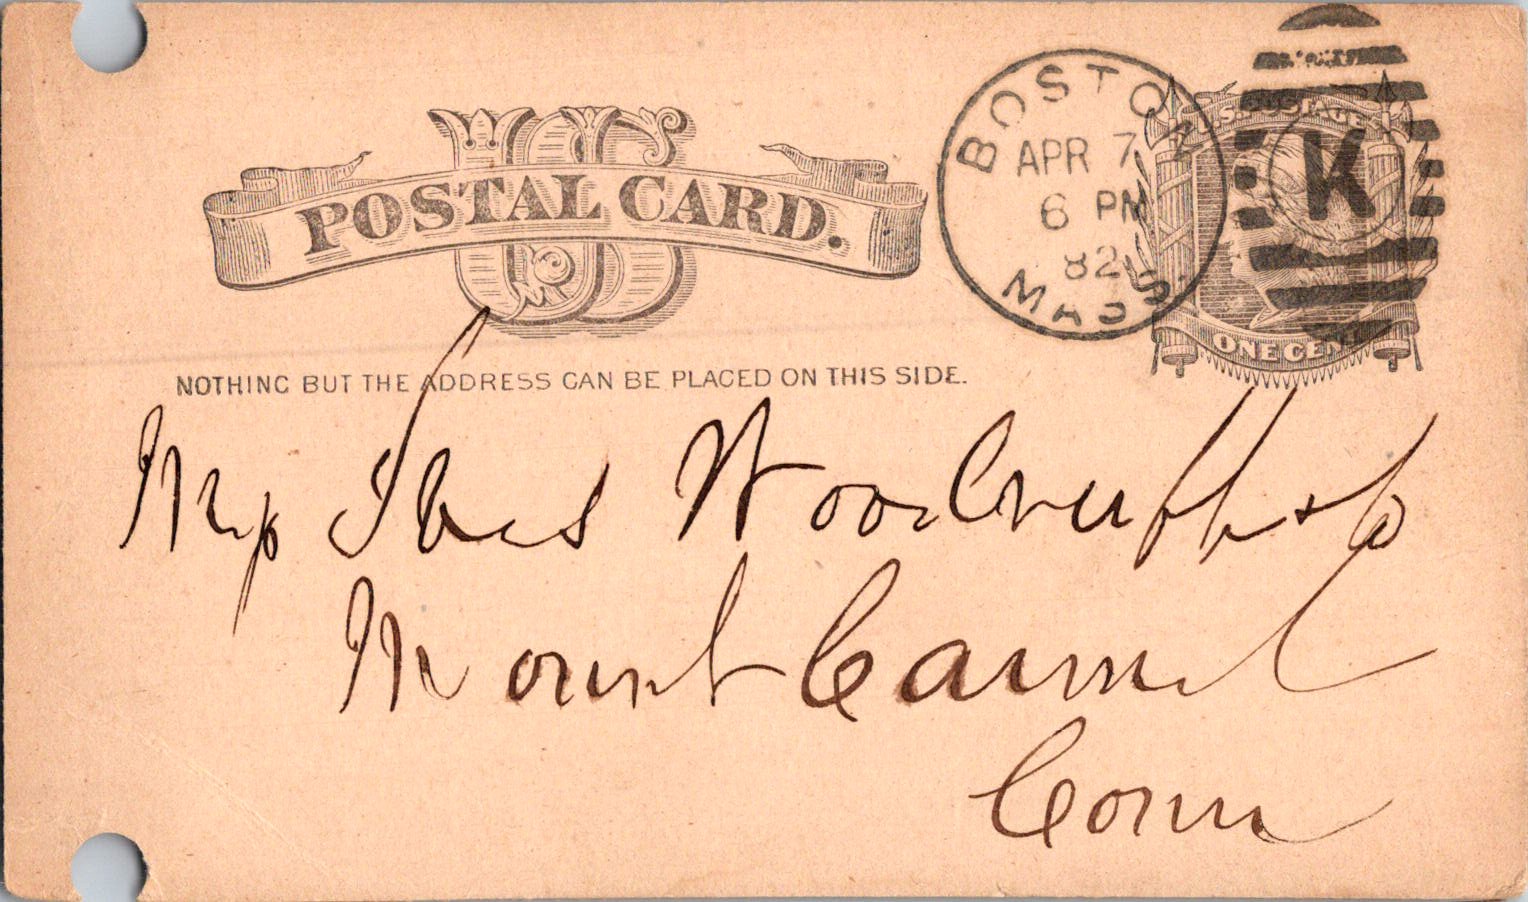 US
POSTAL CARD.
BOSTON
APR 7
6 PM
82
MASS
K
U.S. POSTAGE
ONE CENT
NOTHING BUT THE ADDRESS CAN BE PLACED ON THIS SIDE.
Woodruff
Mount Carmel
Conn